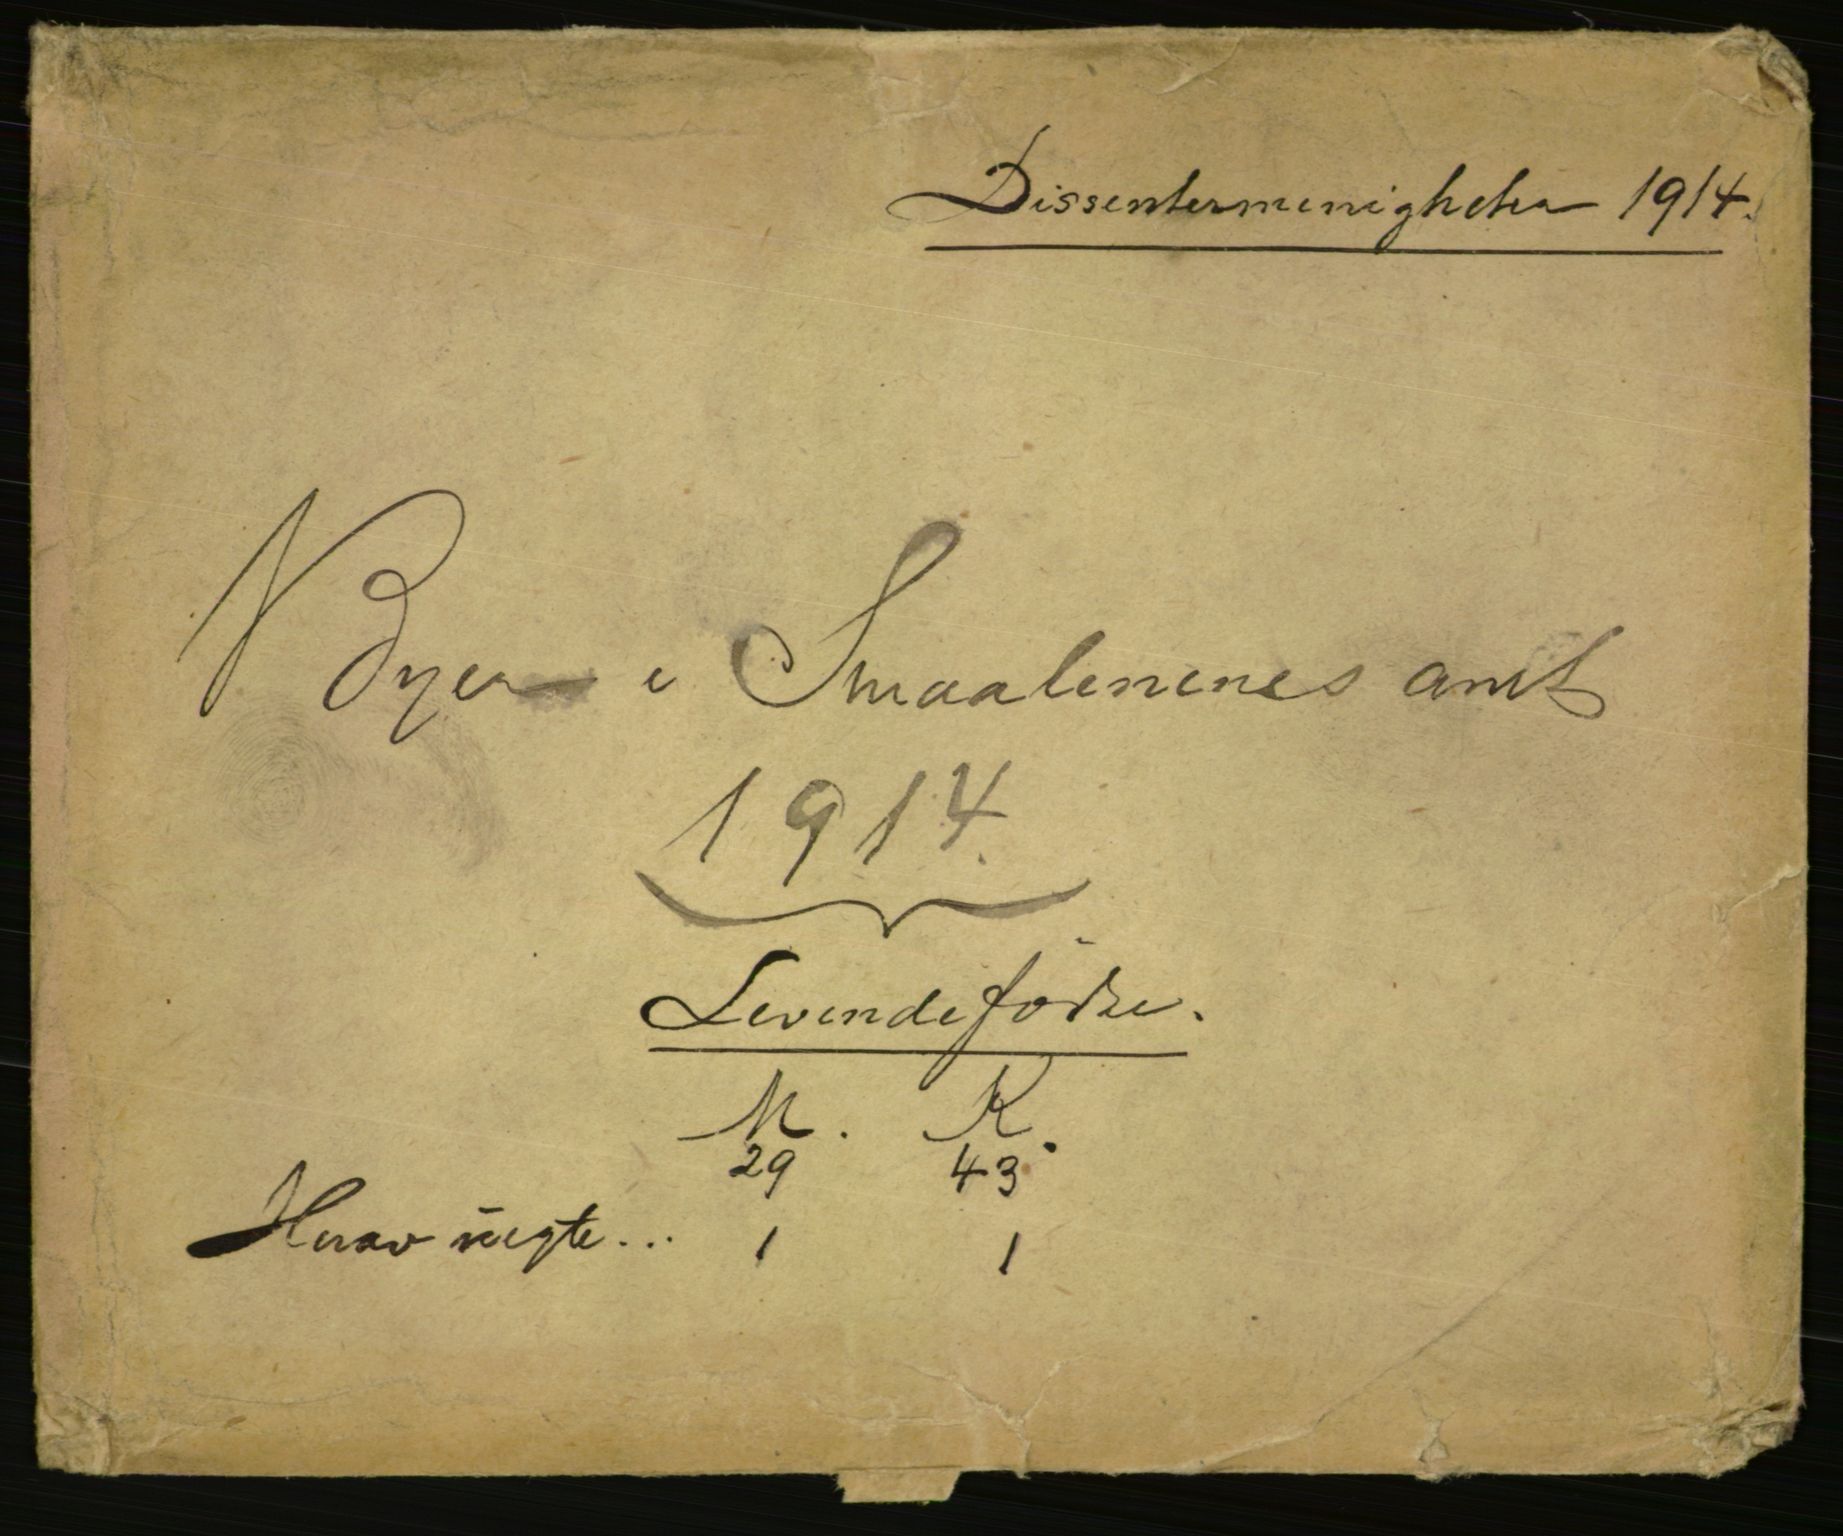 Dissentermenigheter 1914.
Byer i Smaalenenes amt
1914.
Levendefödte.
M. K.
29 43
Herav uegte... 1 1